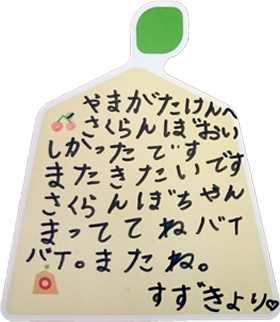 やまがたけんへ
さくらんぼおい
しかったですす
またきたいです
さくらんぼちゃん
まっててねバイ
バイ。またね。
すずきより♡